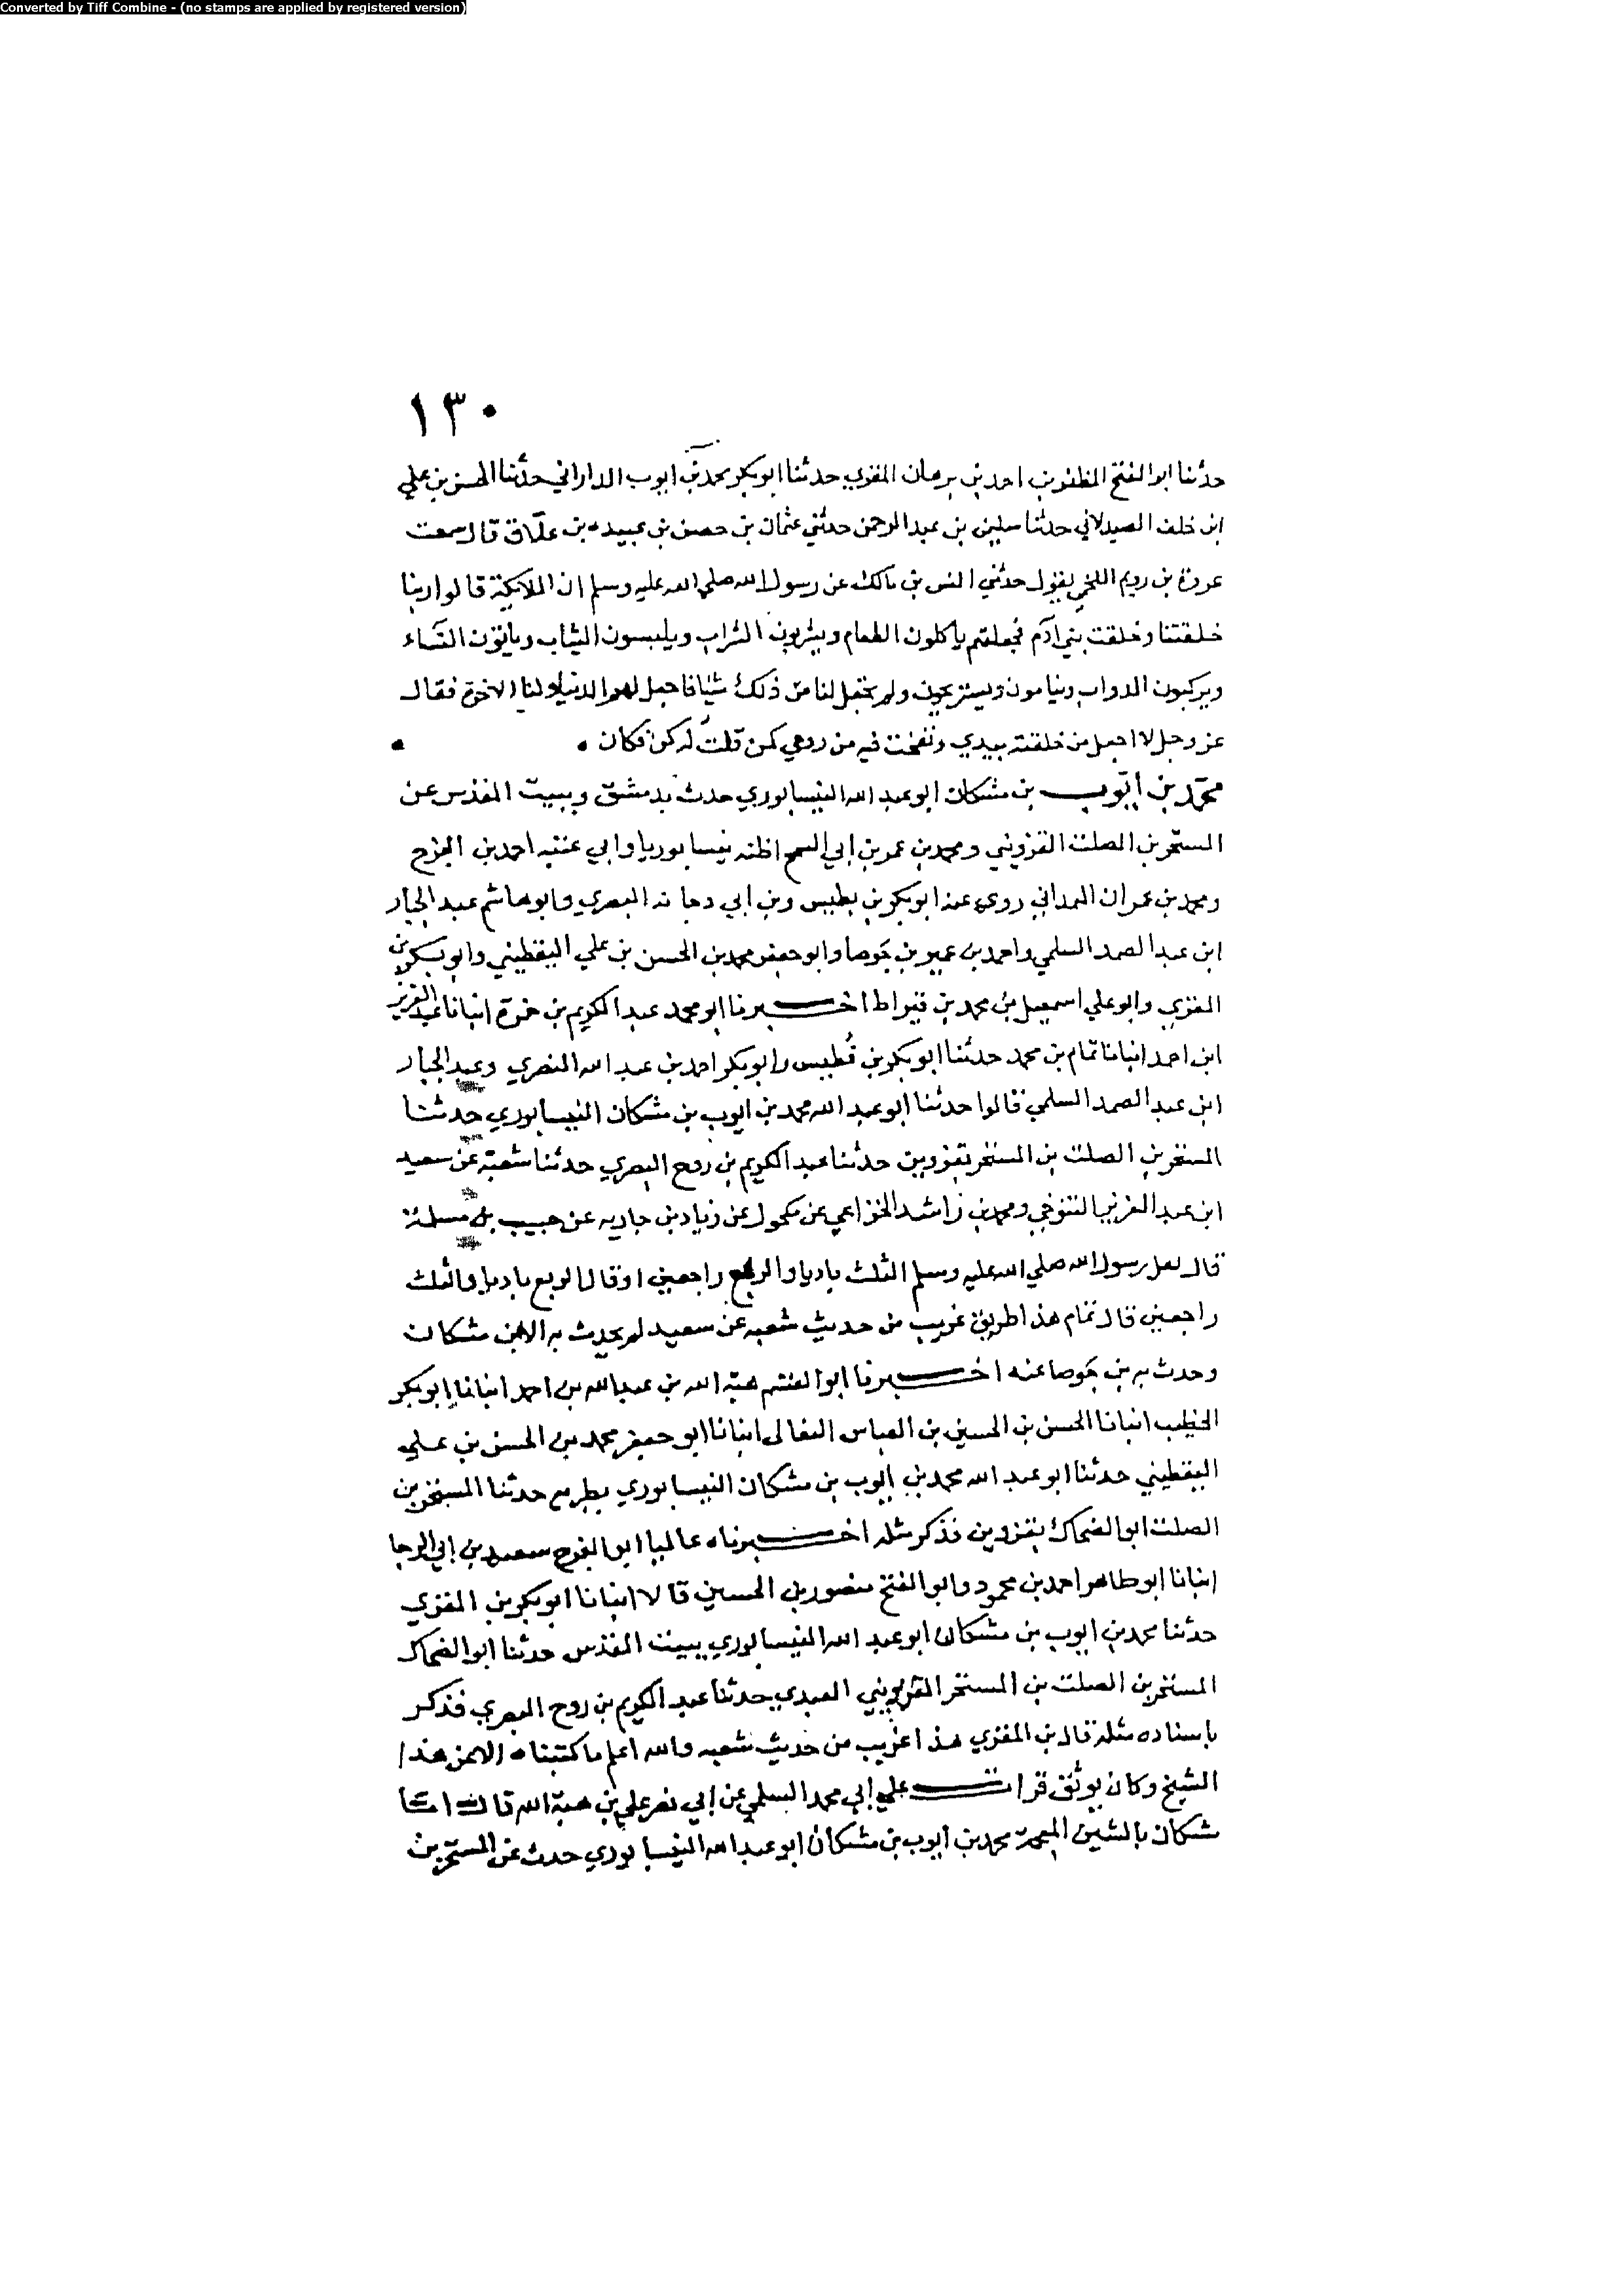 Converted by Tiff Combine - (no stamps are applied by registered version)
١٣٠
حدثنا ابو الفتح المظفر بن احمد بن برهان المقري حدثنا ابو بكر محمد بن ايوب الداراني حدثنا الحسن بن علي
ابن خلف الصيدلاني حدثنا سليمن بن عبد الرحمن حدثني عثمان بن حصن بن عبيده بن علاق قال سمعت
عروة بن رويم اللخمي يقول حدثني انس بن مالك عن رسول الله صلي الله عليه وسلم ان الملائكة قالوا ربنا
خلقتنا وخلقت بني آدم فجعلتهم ياكلون الطعام ويشربون الشراب ويلبسون الثياب وياتون النساء
ويركبون الدواب وينامون ويستريحون ولم تجعل لنا من ذلك شيا فاجعل لهم الدنيا ولنا الاخرة فقال
عز وجل لا اجعل من خلقته بيدي ونفخت فيه من روحي كمن قلت له كن فكان
محمد بن ايوب بن مشكان ابو عبد الله النيسابوري حدث بدمشق وببيت المقدس عن
المستنخر بن الصلت القزويني ومحمد بن عمر بن ابي السمح اظنه نيسابوريا وابي عتبه احمد بن الفرج
ومحمد بن عمران الهمداني روي عنه ابو بكر بن بطيس وبن ابي دجانه البصري وابو هاشم عبد الجبار
ابن عبد الصمد السلمي واحمد بن عمير بن جوصا وابو جعفر محمد بن الحسن بن علي اليقطيني وابو بكر بن
المقري وابو علي اسمعيل بن محمد بن قيراط اخبرنا ابو محمد عبد الكريم بن حمزة انبانا عبد العزيز
ابن احمد انبانا تمام بن محمد حدثنا ابو بكر بن قطيس وابو بكر احمد بن عبد الله النصري وعبد الجبار
ابن عبد الصمد السلمي قالوا حدثنا ابو عبد الله محمد بن ايوب بن مشكان النيسابوري حدثنا
المستنخر بن الصلت بن المستنخر بقزوين حدثنا عبد الكريم بن روح البصري حدثنا شعبة عن سعيد
ابن عبد العزيز التنوخي ومحمد بن راشد الخزاعي عن مكحول عن زياد بن جاريه عن حبيب بن مسلمة
قال نفل رسول الله صلي الله عليه وسلم الثلث باديا والربع راجعين او قال الربع باديا والثلث
راجعين قال تمام هذا طريق غريب من حديث شعبه عن سعيد لم يحدث به الا بن مشكان
وحدث به بن جوصا عنه اخبرنا ابو القسم هبة الله بن عبد الله بن احمد انبانا ابو بكر
الخطيب انبانا الحسن بن الحسين بن العباس النعالي انبانا ابو جعفر محمد بن الحسن بن علي
اليقطيني حدثنا ابو عبد الله محمد بن ايوب بن مشكان النيسابوري بطبريه حدثنا المستنخر بن
الصلت ابو الضحاك بقزوين فذكر مثله اخبرناه عاليا ابو الفرج سعيد بن ابي الرجا
انبانا ابو طاهر احمد بن محمود وابو الفتح منصور بن الحسين قالا انبانا ابو بكر بن المقري
حدثنا محمد بن ايوب بن مشكان ابو عبد الله النيسابوري ببيت المقدس حدثنا ابو الضحاك
المستنخر بن الصلت بن المستنخر القزويني العبدي حدثنا عبد الكريم بن روح البصري فذكر
باسناده مثله قال بن المقري هذا غريب من حديث شعبه والله اعلم ما كتبناه الا من هذا
الشيخ وكان يوثق قرات علي ابي محمد السلمي عن ابي نصر علي بن هبة الله قال اما
مشكان بالشين المعجمه محمد بن ايوب بن مشكان ابو عبد الله النيسابوري حدث عن المستنخر بن